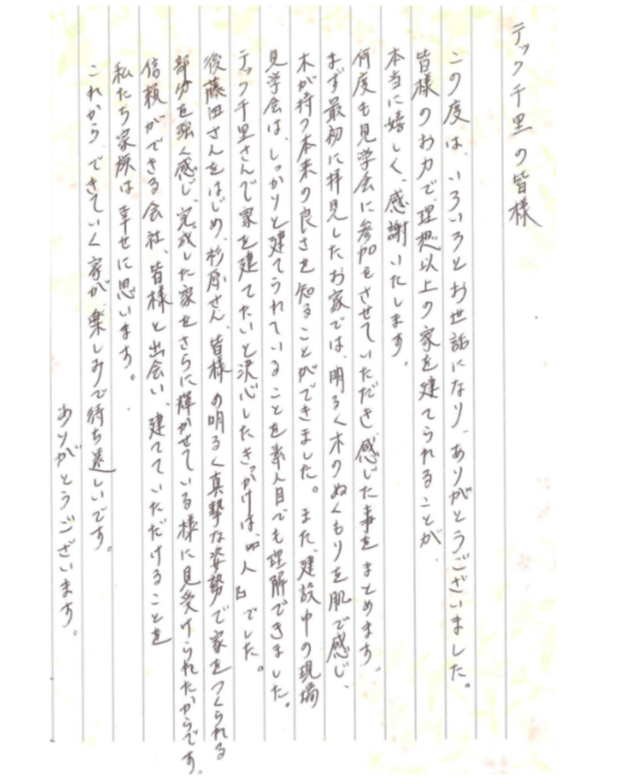 テック千里の皆様
この度は、いろいろとお世話になり、ありがとうございました。
皆様のお力で、理想以上の家を建てられることが
本当に嬉しく、感謝いたします。
何度も見学会に参加をさせていただき、感じた事をまとめます。
まず最初に拝見したお家では、明るく木のぬくもりを肌で感じ、
木が持つ本来の良さを知ることができました。また、建設中の現場
見学会は、しっかりと建てられていることを素人目でも理解できました。
テック千里さんで家を建てたいと決心したきっかけは、"人"でした。
後藤田さんをはじめ、杉原さん、皆様の明るく真摯な姿勢で家をつくられる
部分を強く感じ、完成した家をさらに輝かせている様に見受けられたからです。
信頼ができる会社、皆様と出会い、建てていただけることを
私たち家族は幸せに思います。
これから、できていく家が、楽しみで待ち遠しいです。
ありがとうございます。